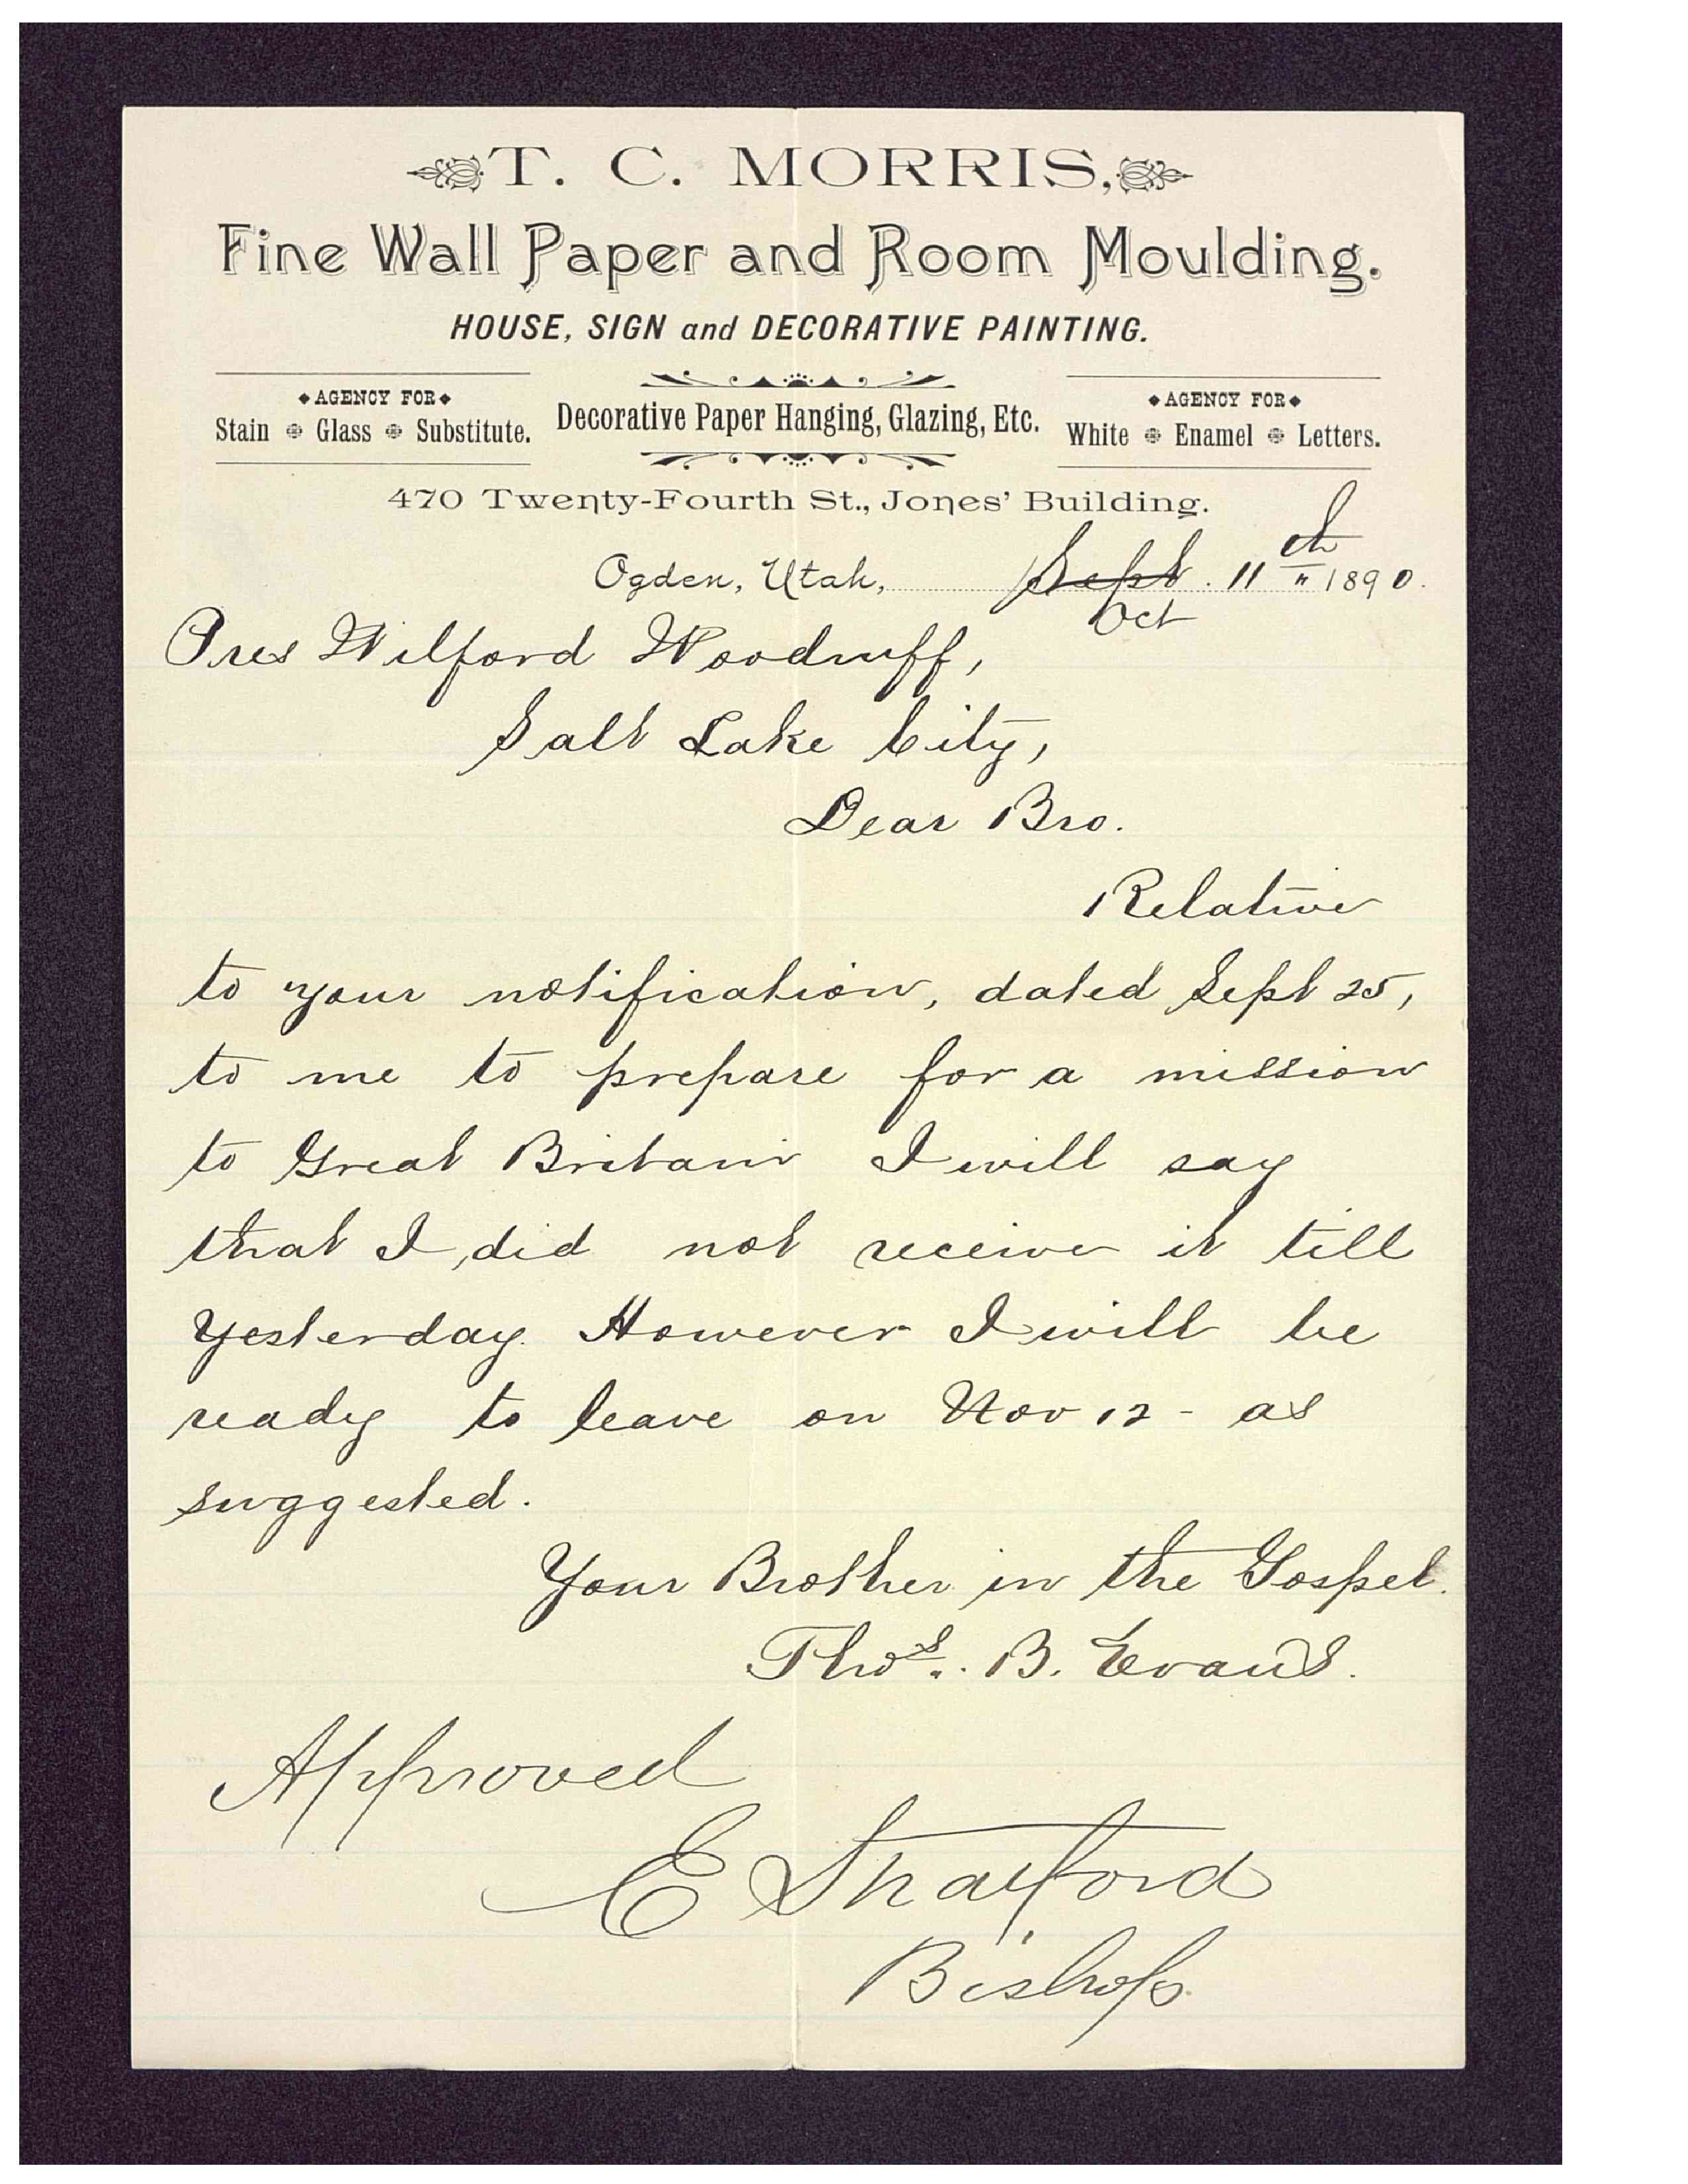 T. C. MORRIS,
Fine Wall Paper and Room Moulding.
HOUSE, SIGN and DECORATIVE PAINTING.
AGENCY FOR
Stain Glass Substitute.
Decorative Paper Hanging, Glazing, Etc.
AGENCY FOR
White Enamel Letters.
470 Twenty-Fourth St., Jones' Building.
Ogden, Utah, Sept. 11th 1890.
Oct
Pres Wilford Woodruff,
Salt Lake City,
Dear Bro.
Relative
to your notification, dated Sept 25,
to me to prepare for a mission
to Great Britain I will say
that I, did not receive it till
Yesterday. However I will be
ready to leave on Nov 12 - as
suggested.
Your Brother in the Gospel.
Thos. B. Evans.
Approved
E Stratford
Bishop